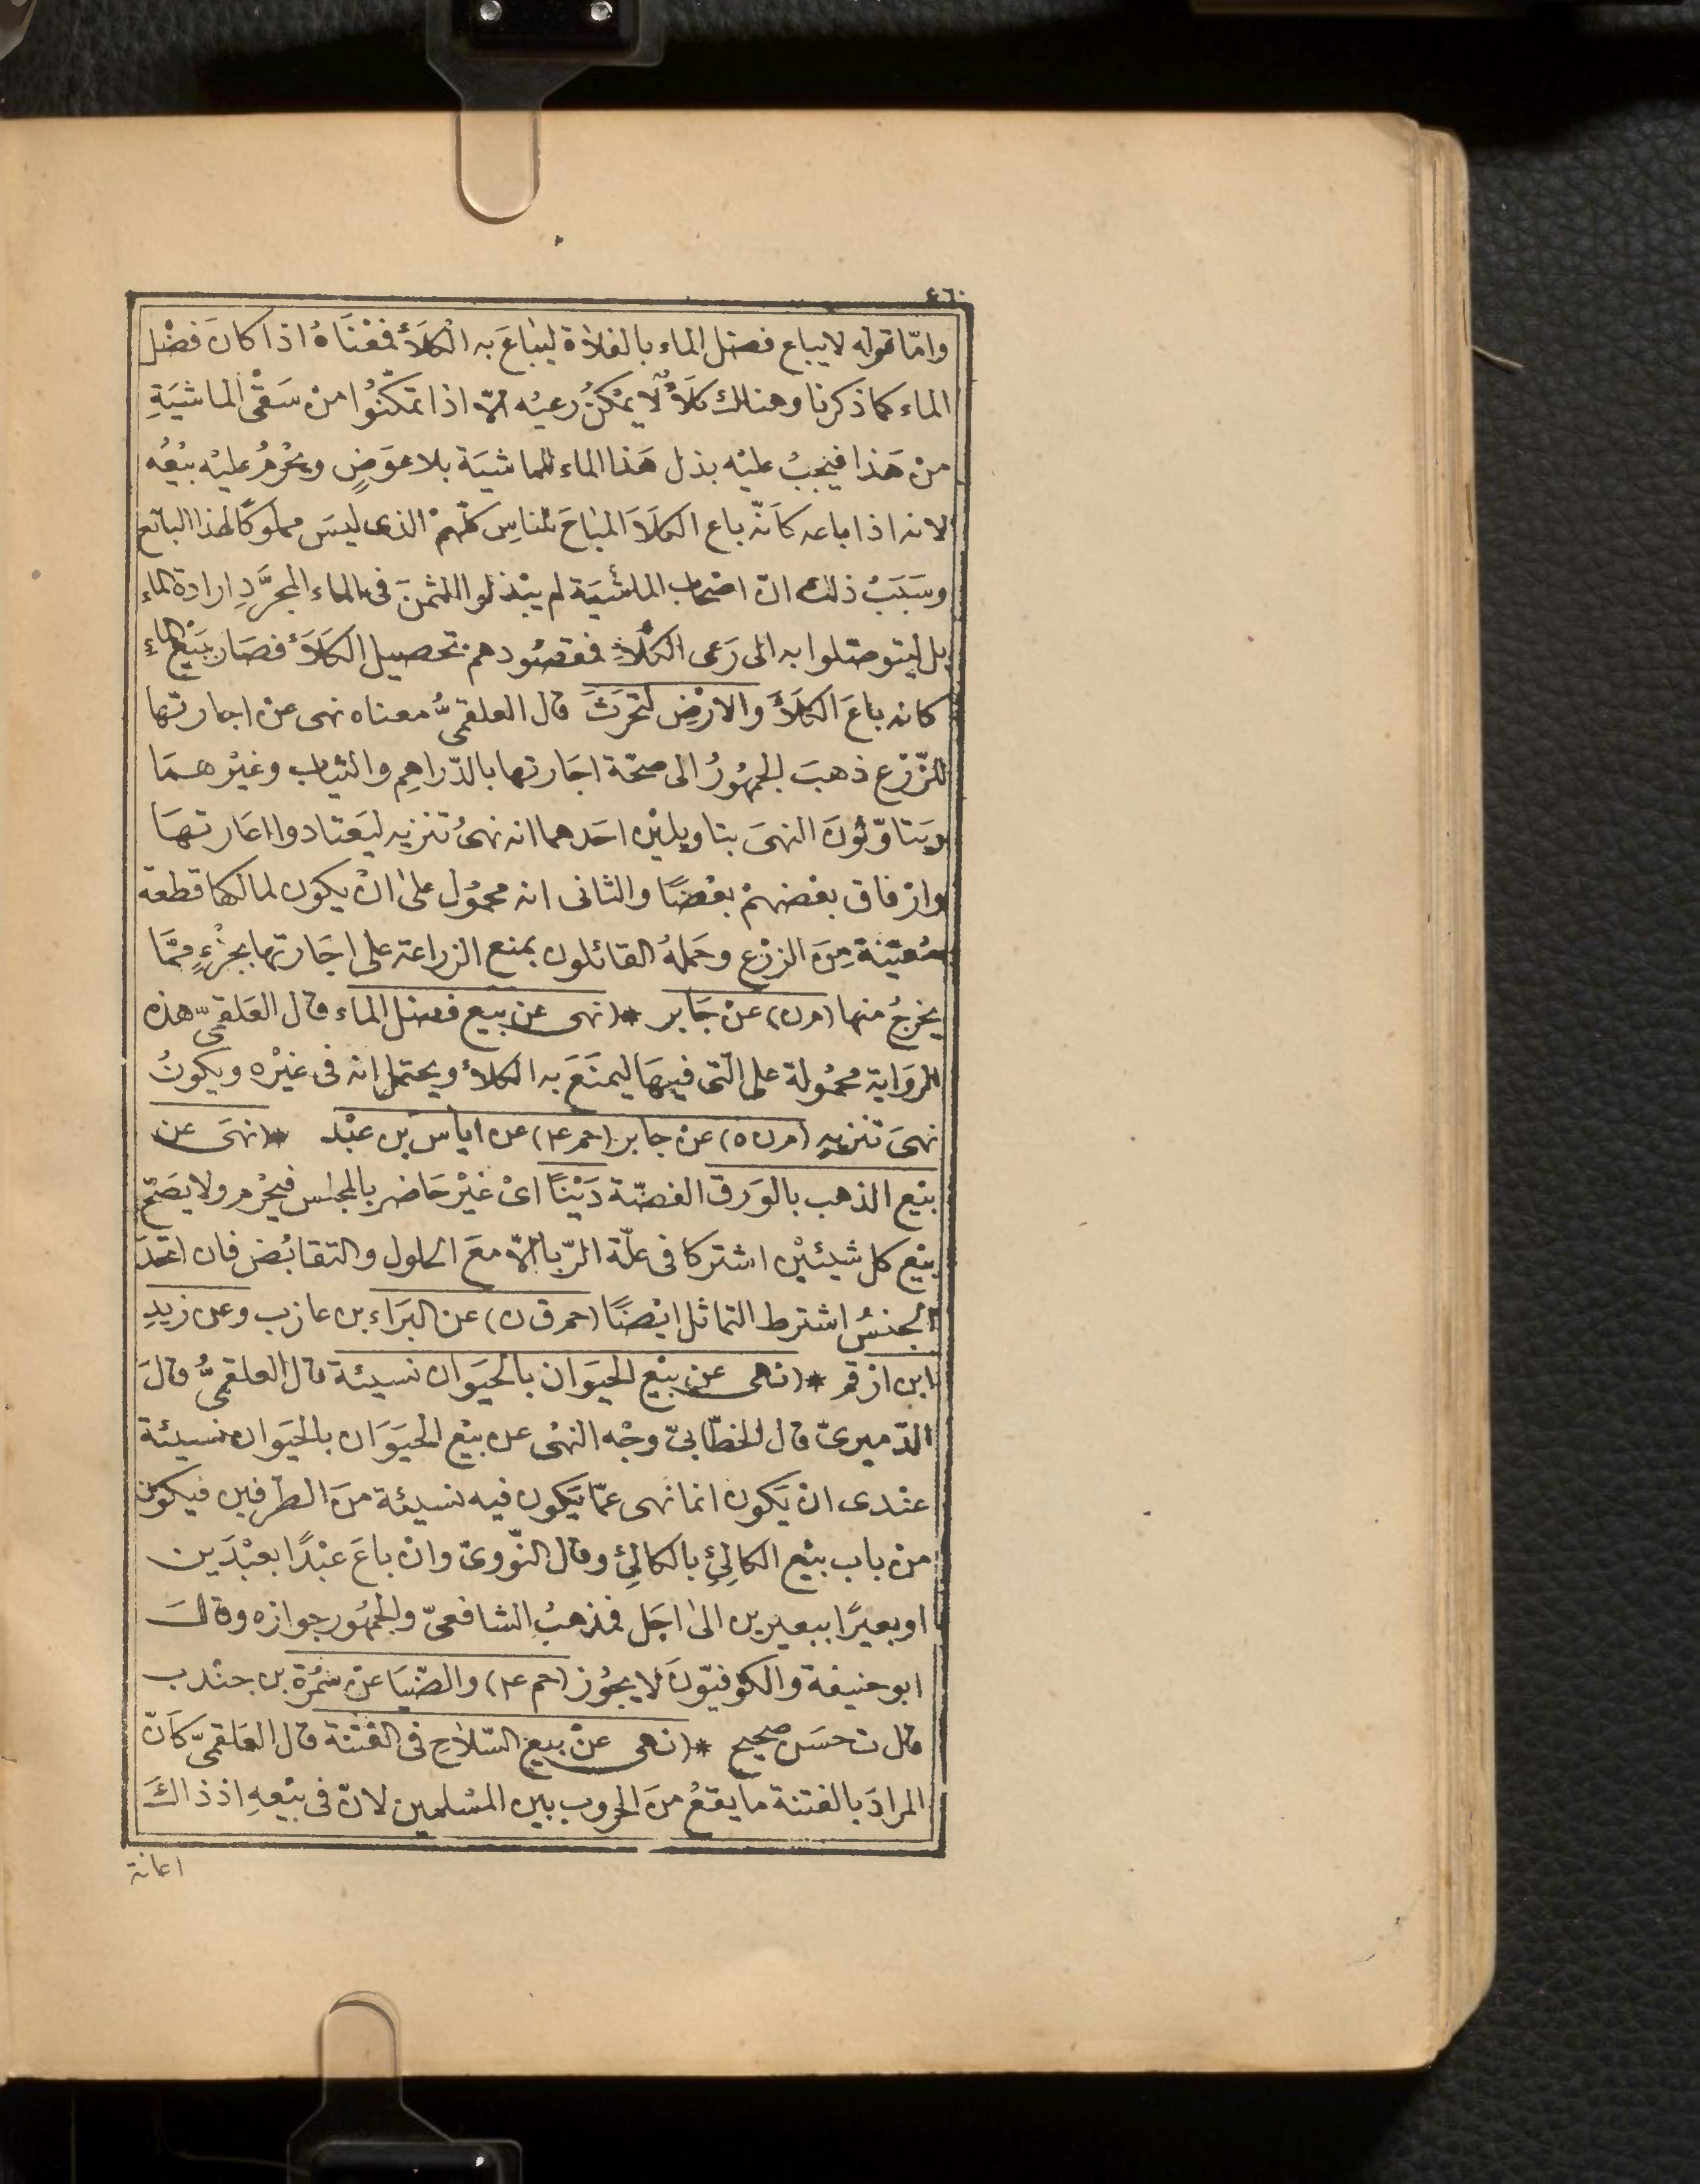 ٤٦٠
وامّا قوله لا يباع فضل الماء بالفلاة ليُباعَ به الكلأ فمعْنَاهُ اذا كانَ فضْل
الماء كما ذكرنا وهنالك كلأٌ لا يمْكنُ رعيُه الّا اذا تمكّنُوا منْ سَقْىِ الماشيَةِ
منْ هَذا فيجبُ عليْه بذل هَذا الماء للماشيَة بلا عوَضٍ ويحْرُمُ عليْه بيْعُه
لانه اذا باعه كأنّه باع الكلأَ المباحَ للناسِ كلّهمْ الذى ليسَ مملوكًا لهذا البائع
وسَبَبُ ذلك انّ اصْحاب الماشيَة لم يبْذلوا الثمنَ فى الماء المجرَّدِ ارادة الماء
بل ليتوصّلوا به الى رَعى الكلاءِ فمقصُودهم تحصيل الكلأ فصَار بَيْع الماءِ
كانه باعَ الكلأَ والارْضِ لتحْرَثَ قال العلقمىُّ معناه نهى عن اجارتها
للزّرْع ذهبَ الجمهُورُ الى صحّة اجَارتها بالدّراهِم والثياب وغيْرهمَا
ويَتاوّلُونَ النهىَ بتاويليْن احَدهما انه نهىُ تنزيه ليَعتادوا اعَارتهَا
وارْفاق بعْضهمْ بعْضًا والثانى انه محمُول على انْ يكون لمالكها قطعة
مُعيّنة مِنَ الزرْع وحَملهُ القائلون بمنع الزراعة على اجَارتها بجُزْءٍ ممَّا
يخرجُ منها (م ن) عنْ جَابر * (نهى عن بيع فضل الماء قال العَلقمىّ هذه
الروَاية محمُولة على التى فيهَا ليمنَعَ به الكلأ ويحتمل انه فى غيْره ويكونُ
نهىَ تنزيه (م ن ٥) عنْ جابر (حم ٤) عن اياس بن عبْد * (نهىَ عن
بيْع الذهب بالوَرق الفضّة دَيْنًا اىْ غيْرحَاضر بالمجلس فيحْرم ولا يصَحّ
بيْع كل شيئيْن اشتركا فى علّة الرّبا الّا معَ الحلول والتقابُض فان اتحدَ
الجنسُ اشترط التماثل ايْضًا (حم ق ن) عن البَراء بن عازب وعن زيدِ
ابن ارْقم * (نهى عن بيْع الحيَوَان بالحيَوان نسيئة قال العلقمىُّ قالَ
الدّميرىّ قال الخطّابىّ وجْه النهْى عن بيْع الحيَوَان بالحيَوان نسيئة
عنْدى ان يَكون انما نهى عمّا يَكون فيه نسيئة منَ الطرفين فيكون
منْ باب بيْع الكالِئِ بالكالئِ وقال النّووىّ وانْ باعَ عبْدًا بعبْدَين
او بعيرًا ببعيرين الىٰ اجَل فمذهبُ الشافعىّ والجمهُور جوازه وقالَ
ابو حنيفة والكوفيّونَ لا يجُوز (حم ٤) والضّيَا عنْ سَمُرَة بن جنْدب
قال ت حسَن صحيح * (نهى عنْ بيع السّلاحِ فى الفتنة قال العَلقمىّ كَأنّ
المرادَ بالفتنة ما يقعُ منَ الحروب بين المسْلمين لانّ فى بيْعهِ اذ ذاكَ
اعانة